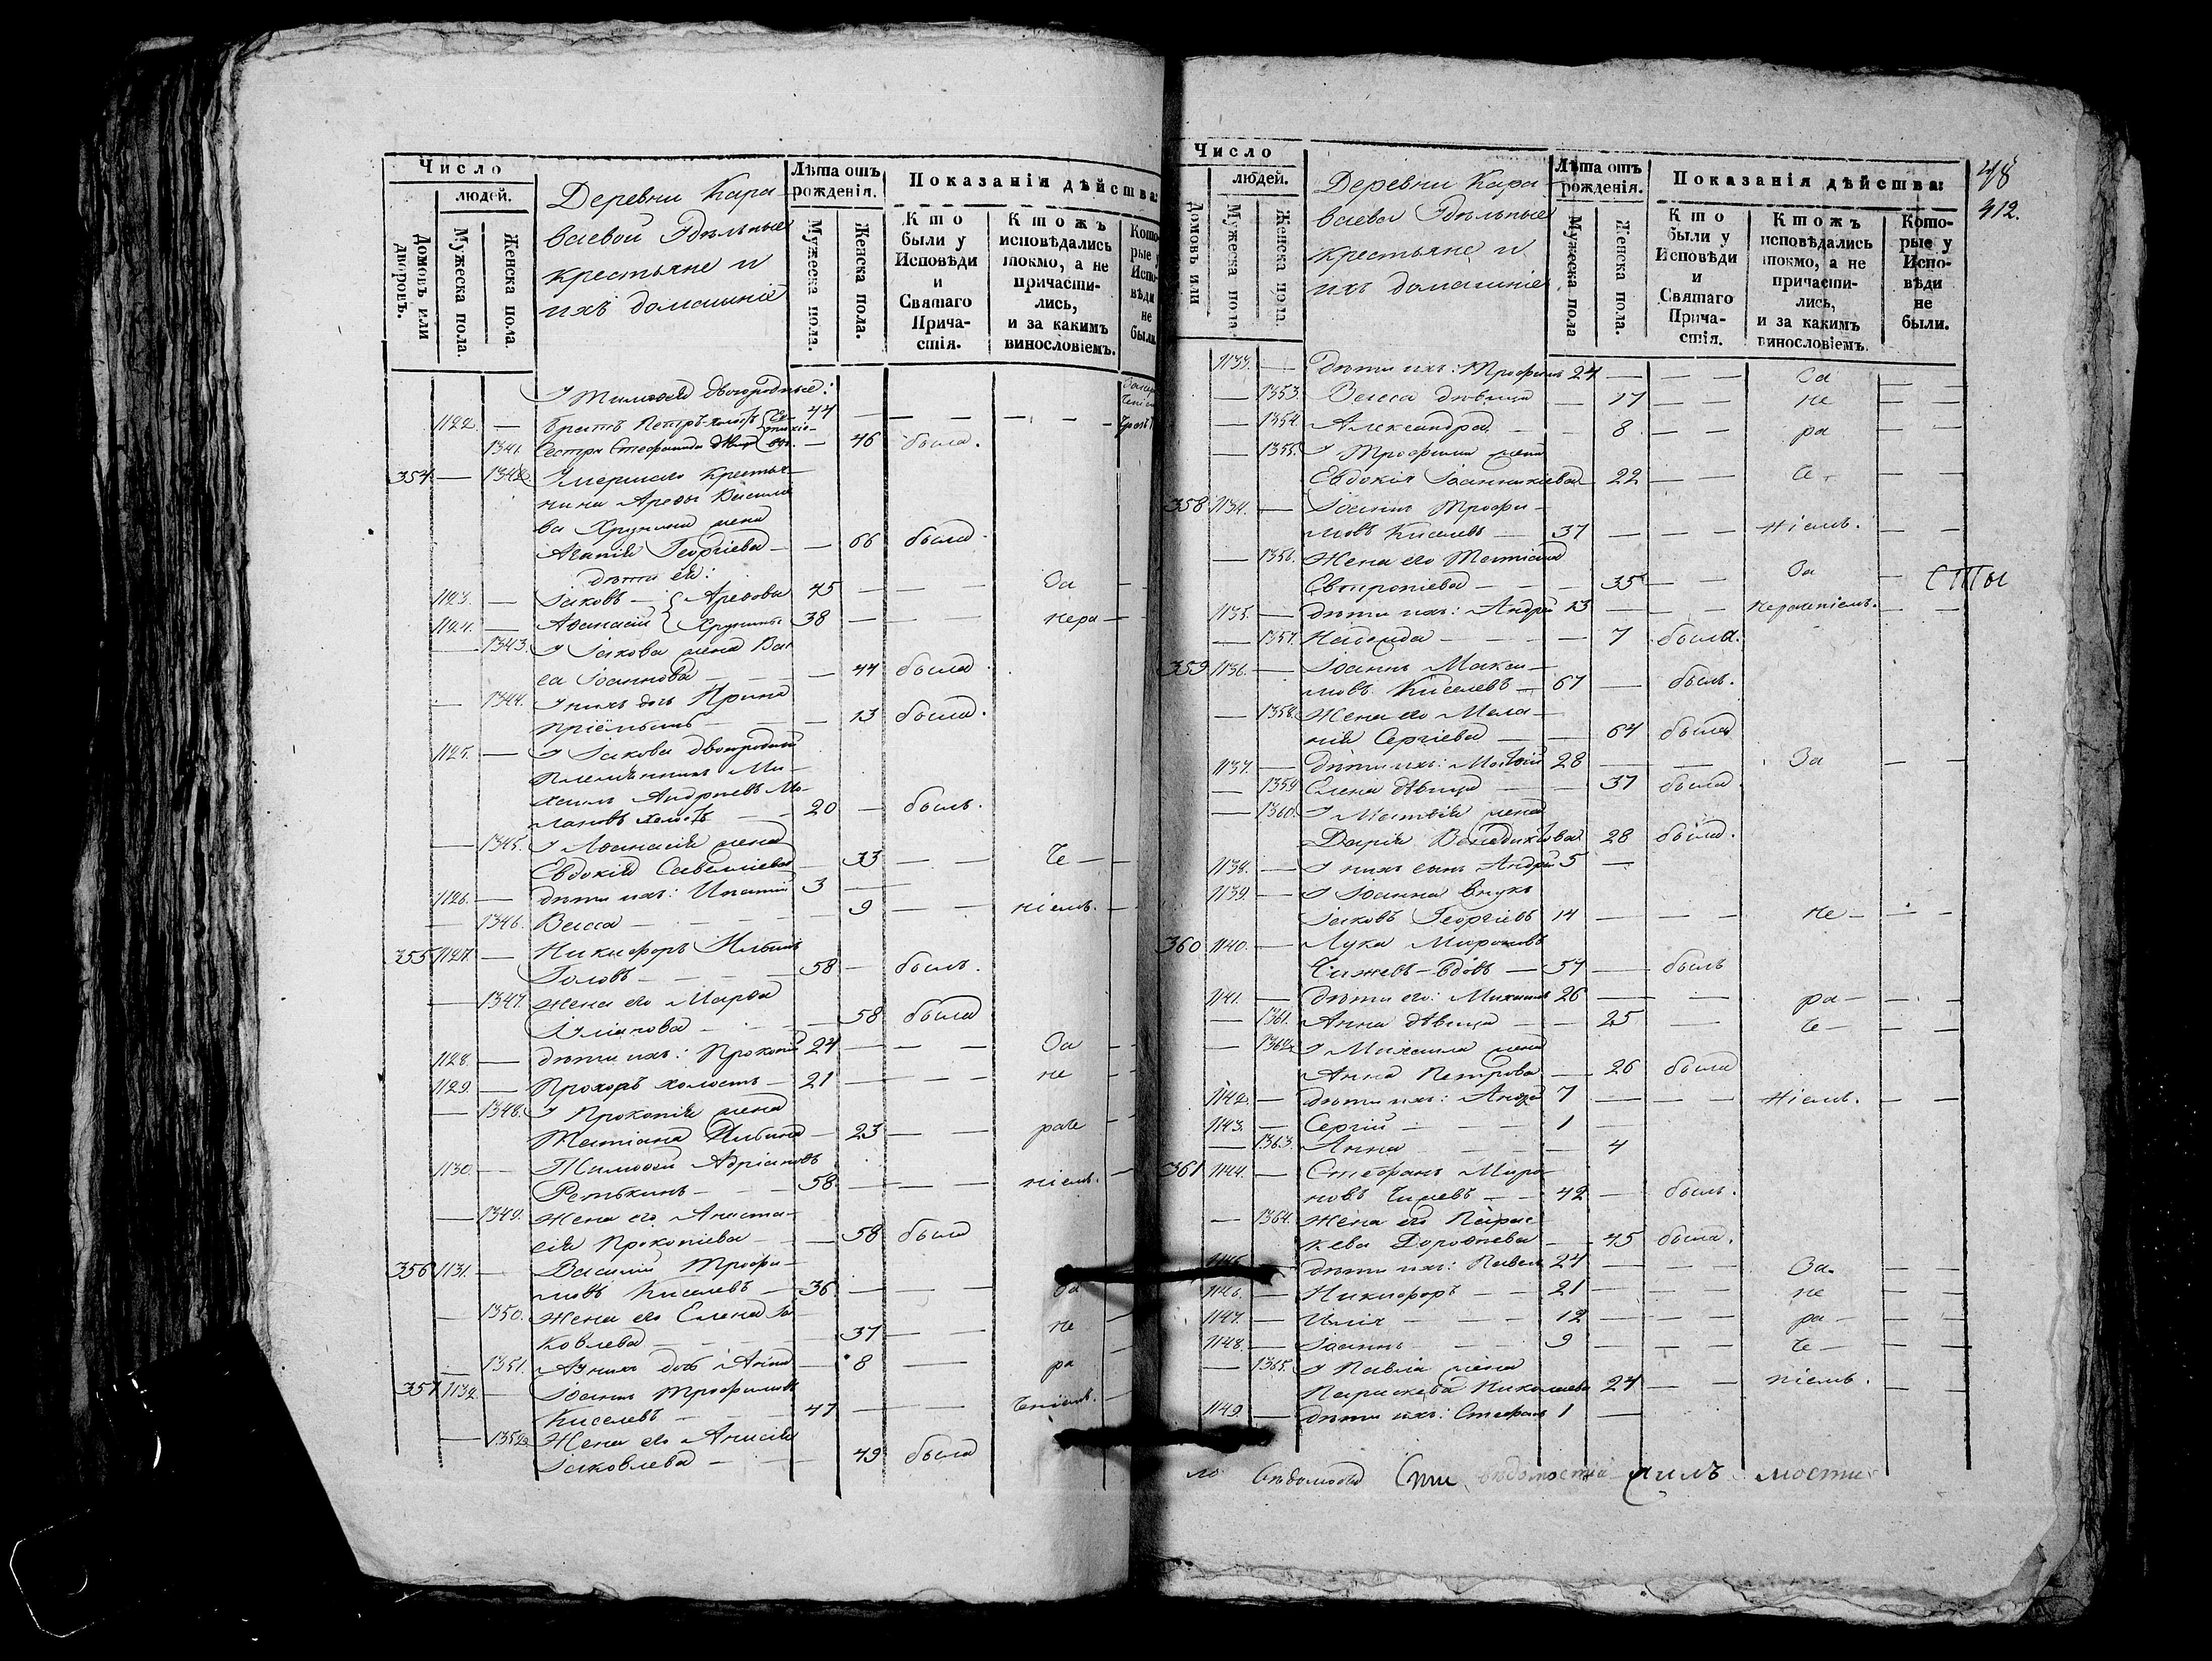 Число
людей.
Домовъ или дворовъ.
Мужеска пола.
Женска пола.
Деревни Кара-
ваевой Удѣльные
крестьяне и
ихъ домашніе
Лѣта отъ рожденія.
Мужеска пола.
Женска пола.
Показанія дѣйства:
Кто были у Исповѣди и Святаго Причастія.
Ктожъ исповѣдались токмо, а не причастились, и за какимъ винословіемъ.
У Тимофея двоюродные:
1122. — братъ Петръ холостъ 44 —
1341. Сестра Стефанида — 46 была.
354 — 1342. Умершаго крестья-
нина Арефы Василіе
ва Хрунина жена
Агапія Георгіева — — 66 была.
дѣти ея:
1123. — Іаковъ — Арефовы 45 — — За
1124. — Афанасій Хрунины 38 — — нера
— 1343. У Іакова жена Вас
са Іоаннова — — 44 была
— 1344. У нихъ дочь Ирина
пріёмышъ — — 13 была.
1125. — У Іакова двоюродный
племянникъ Ми-
хаилъ Андреевъ Мо-
лановъ холостъ — 20 — былъ.
— 1345. У Афанасія жена
Евдокія Савеліева — 33 — — че
1126. — дѣти ихъ: Игнатій 3 —
— 1346. Васса — — 9 — — ніемъ.
355 1127. — Никифоръ Ильинъ
Головъ — — 58 — былъ.
— 1347. жена его Марфа
Іуліанова — — 58 была
1128. — дѣти ихъ: Прокопій 24 — — За
1129. — Прохоръ холостъ — 21 — — не
— 1348. У Прокопія жена
Татіана Ильина — 23 — — раче
1130. — Тимофей Адріановъ
Ретькинъ — — 58 — — ніемъ.
— 1349. жена его Анаста-
сія Прокопіева — — 58 была
356 1131. — Василій Трофи-
мовъ Киселевъ — 36 — — За
— 1350. жена его Елена Іа
ковлева — — 37 — — не
— 1351. У нихъ дочь Анна — 8 — ра
357 1132. — Іоаннъ Трофимовъ
Киселевъ — — 47 — — ченіемъ.
— 1352. Жена его Анисія
Іаковлева — — 49 была
Число
людей.
Домовъ или
Мужеска пола.
Женска пола.
Деревни Кара-
ваева Удѣльные
крестьяне и
ихъ домашніе
Лѣта отъ рожденія.
Мужеска пола
Женска пола.
Показанія дѣйства:
Кто были у Исповѣди и Святаго Причастія.
Ктожъ исповѣдались токмо, а не причастились, и за какимъ винословіемъ.
Которые у Исповѣди не были.
48
412.
1133. — дѣти ихъ: Трофимъ 24 — — За — —
— 1353. Васса дѣвица — 17 — — не — —
— 1354. Александра — 8 — — ра — —
— 1355. У Трофима жена
Евдокія Іоанникіева — 22 — — че — —
358 1134. — Іоаннъ Трофи-
мовъ Киселевъ — 37 — — ніемъ. — —
— 1356. Жена его Татіана
Евтропіева — — 35 — — За — сты
1135. — дѣти ихъ: Андрей 13 — — нераченіемъ. — —
— 1357. Надежда — — 7 была.
359 1136. — Іоаннъ Макси-
мовъ Киселевъ — 67 — былъ.
— 1358. Жена его Мела-
нія Сергіева — — 64 была
1137. — дѣти ихъ: Матѳій 28 — За — —
— 1359 Елена дѣвица — 37 была.
— 1360. У Матѳія жена
Дарія Венедиктова 28 была.
1138. — У нихъ сынъ Андрей 5 —
1139. — У Іоанна внукъ
Іаковъ Георгіевъ 14 — — не — —
360 1140. — Лука Мироновъ
Чижевъ — вдовъ — 54 — былъ
1141. — дѣти его: Михаилъ 26 — — ра — —
— 1361. Анна дѣвица — 25 — че — —
— 1362. У Михаила жена
Анна Петрова — 26 была
1142. — дѣти ихъ: Андрей 7 — — ніемъ. — —
1143. — Сергій — — 1 —
— 1363. Анна — — 4
361 1144. — Стефанъ Миро-
новъ Чижевъ — 42 — былъ.
— 1364. жена его Парас
кева Дорофеева — 45 была.
1145. — дѣти ихъ: Павелъ 24 — — За — —
1146. — Никифоръ — 21 — — не — —
1147. — Илія — — 12 — — ра — —
1148. — Іоаннъ — — 9 — — че — —
— 1365. У Павла жена
Параскева Николаева 24 — — ніемъ. — —
1149. — дѣти ихъ: Стефанъ 1 —